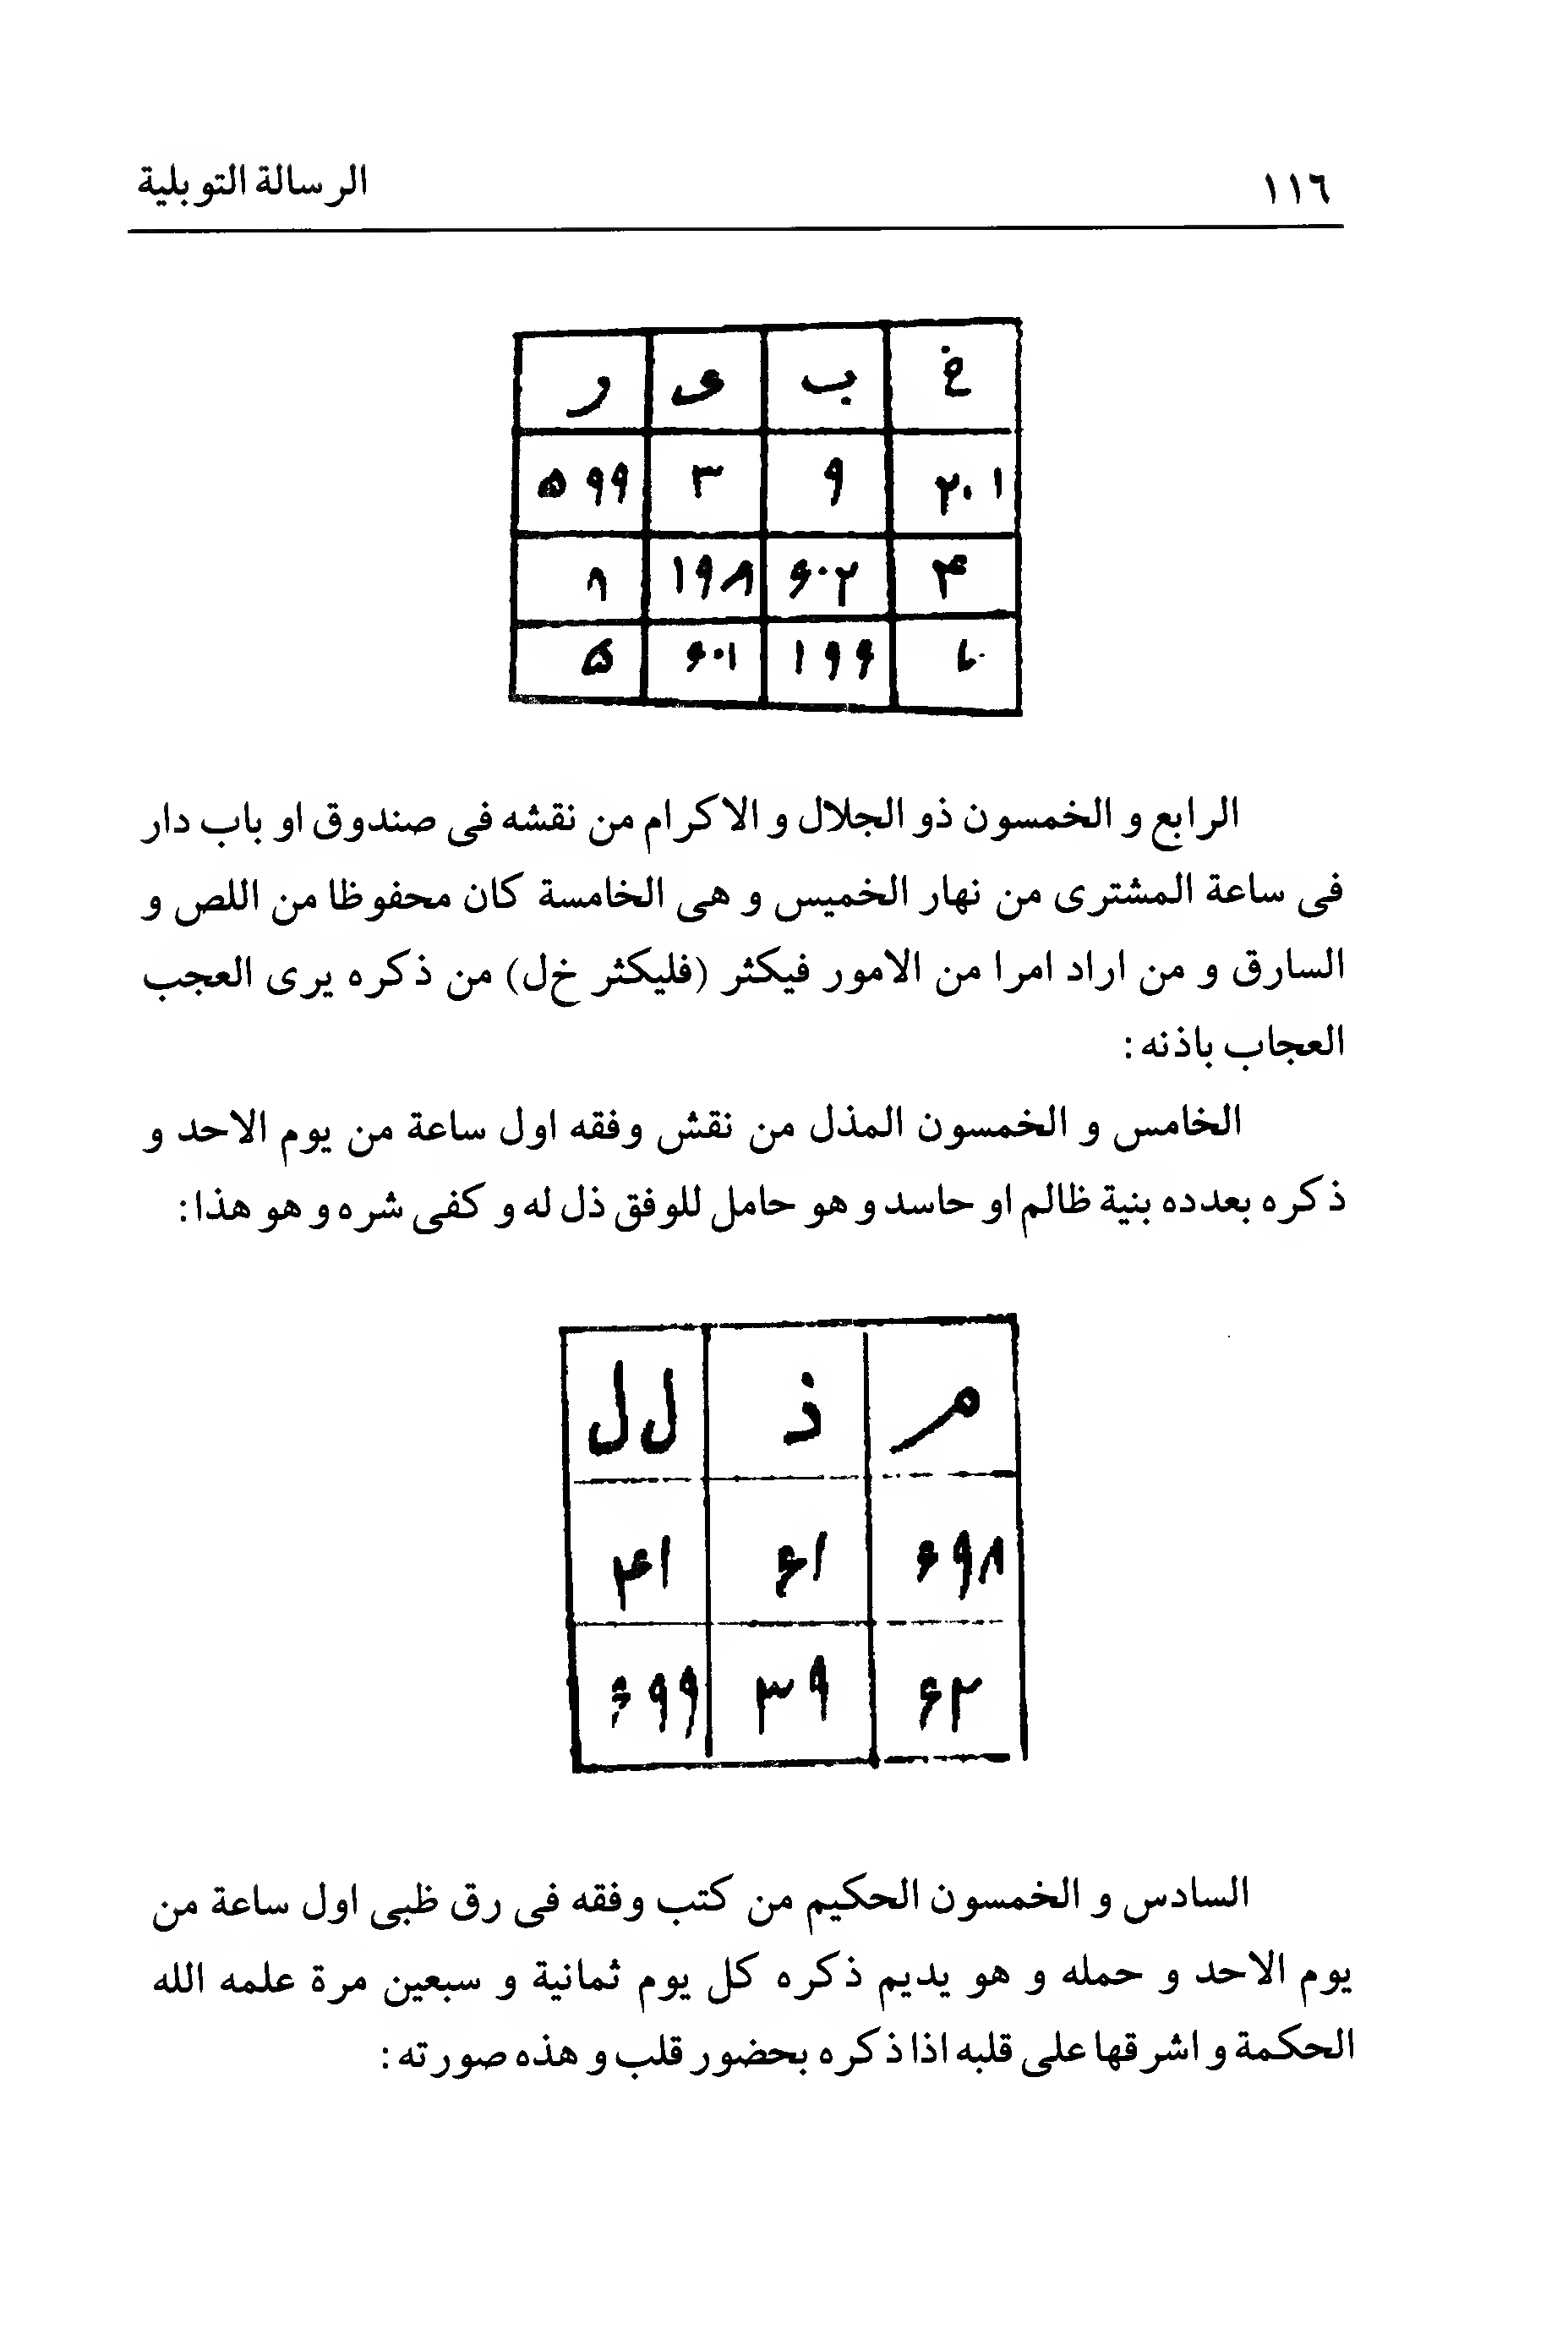 ١١٦ الرسالة التوبلية
خ ب ى ر
۲۰۱ ۹ ۳ ۵۹۹
۴ ۶۰۲ ۱۹۸ ۸
۱۹۹ ۶۰۱ ۵
الرابع و الخمسون ذو الجلال و الاكرام من نقشه فى صندوق او باب دار
فى ساعة المشترى من نهار الخميس و هى الخامسة كان محفوظا من اللص و
السارق و من اراد امرا من الامور فيكثر (فليكثر خ‌ل) من ذكره يرى العجب
العجاب باذنه :
الخامس و الخمسون المذل من نقش وفقه اول ساعة من يوم الاحد و
ذكره بعدده بنية ظالم او حاسد و هو حامل للوفق ذل له و كفى شره و هو هذا :
م ذ ل ل
۶۹۸ ۶۱ ۴۱
۶۲ ۳۹ ۶۹۹
السادس و الخمسون الحكيم من كتب وفقه فى رق ظبى اول ساعة من
يوم الاحد و حمله و هو يديم ذكره كل يوم ثمانية و سبعين مرة علمه الله
الحكمة و اشرقها على قلبه اذا ذكره بحضور قلب و هذه صورته :